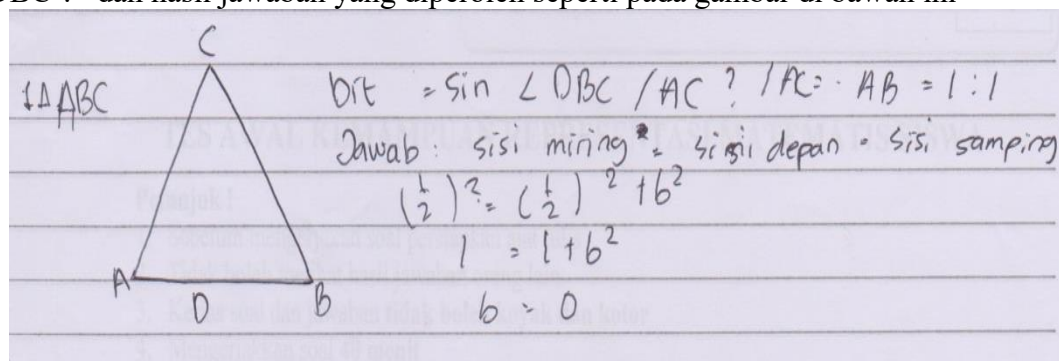 dan hasil jawaban yang diperoleh seperti pada gambar di bawah ini
C
1. Δ ABC
Dit = Sin ∠ DBC / AC ? / AC = AB = 1 : 1
Jawab : sisi miring = sisi depan = sisi samping
(1/2)² = (1/2)² + b²
1 = 1 + b²
A D B
b = 0